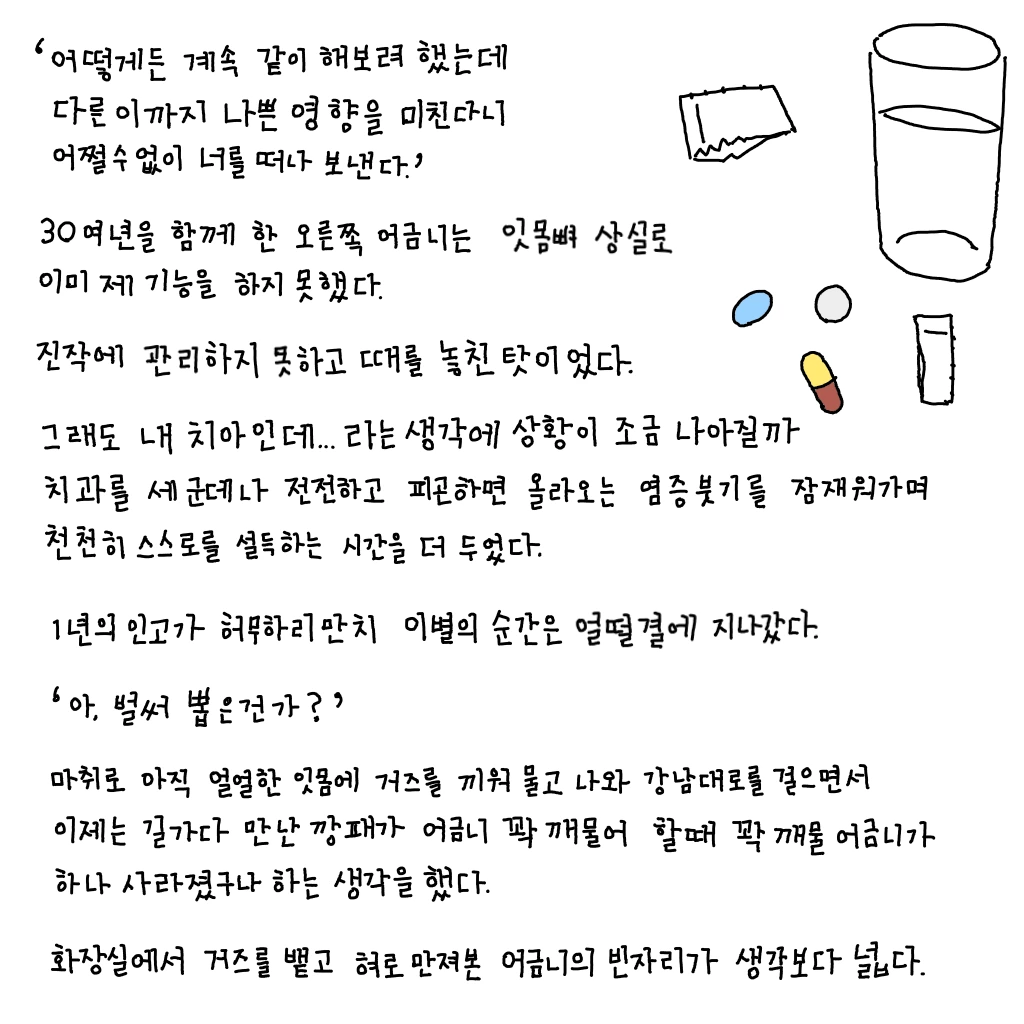 ‘어떻게든 계속 같이 해보려 했는데
다른이까지 나쁜 영향을 미친다니
어쩔수없이 너를 떠나 보낸다.’
30여년을 함께 한 오른쪽 어금니는 잇몸뼈 상실로
이미 제 기능을 하지 못했다.
진작에 관리하지 못하고 때를 놓친 탓이었다.
그래도 내 치아인데... 라는 생각에 상황이 조금 나아질까
치과를 세군데나 전전하고 피곤하면 올라오는 염증붓기를 잠재워가며
천천히 스스로를 설득하는 시간을 더 두었다.
1년의 인고가 허무하리만치 이별의 순간은 얼떨결에 지나갔다.
‘아, 벌써 뽑은건가?’
마취로 아직 얼얼한 잇몸에 거즈를 끼워 물고 나와 강남대로를 걸으면서
이제는 길가다 만난 깡패가 어금니 꽉 깨물어 할때 꽉 깨물 어금니가
하나 사라졌구나 하는 생각을 했다.
화장실에서 거즈를 뱉고 혀로 만져본 어금니의 빈자리가 생각보다 넓다.